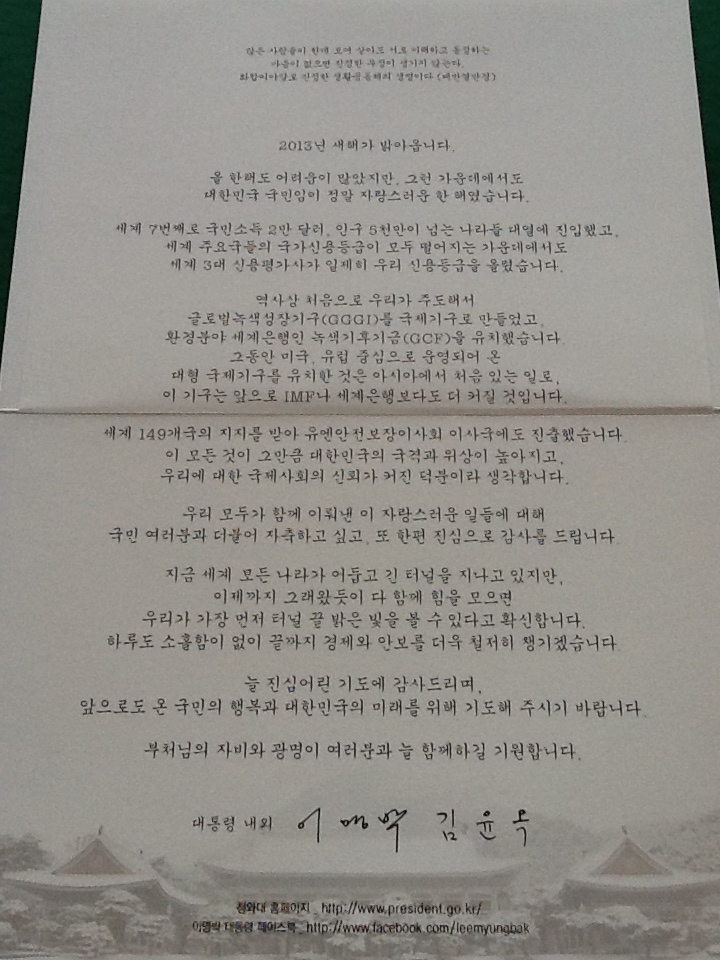 많은 사람들이 한데 모여 살아도 서로 이해하고 동정하는
마음이 없으면 진정한 우정이 생기지 않는다.
화합이야말로 진정한 생활공동체의 생명이다 (대반열반경)
2013년 새해가 밝아옵니다.
올 한해도 어려움이 많았지만, 그런 가운데에서도
대한민국 국민임이 정말 자랑스러운 한 해였습니다.
세계 7번째로 국민소득 2만 달러, 인구 5천만이 넘는 나라들 대열에 진입했고,
세계 주요국들의 국가신용등급이 모두 떨어지는 가운데에서도
세계 3대 신용평가사가 일제히 우리 신용등급을 올렸습니다.
역사상 처음으로 우리가 주도해서
글로벌녹색성장기구(GGGI)를 국제기구로 만들었고,
환경분야 세계은행인 녹색기후기금(GCF)을 유치했습니다.
그동안 미국, 유럽 중심으로 운영되어 온
대형 국제기구를 유치한 것은 아시아에서 처음 있는 일로,
이 기구는 앞으로 IMF나 세계은행보다도 더 커질 것입니다.
세계 149개국의 지지를 받아 유엔안전보장이사회 이사국에도 진출했습니다.
이 모든 것이 그만큼 대한민국의 국격과 위상이 높아지고,
우리에 대한 국제사회의 신뢰가 커진 덕분이라 생각합니다.
우리 모두가 함께 이뤄낸 이 자랑스러운 일들에 대해
국민 여러분과 더불어 자축하고 싶고, 또 한편 진심으로 감사를 드립니다.
지금 세계 모든 나라가 어둡고 긴 터널을 지나고 있지만,
이제까지 그래왔듯이 다 함께 힘을 모으면
우리가 가장 먼저 터널 끝 밝은 빛을 볼 수 있다고 확신합니다.
하루도 소홀함이 없이 끝까지 경제와 안보를 더욱 철저히 챙기겠습니다.
늘 진심어린 기도에 감사드리며,
앞으로도 온 국민의 행복과 대한민국의 미래를 위해 기도해 주시기 바랍니다.
부처님의 자비와 광명이 여러분과 늘 함께하길 기원합니다.
대통령 내외 이명박 김윤옥
청와대 홈페이지 _ http://www.president.go.kr/
이명박 대통령 페이스북 _ http://www.facebook.com/leemyungbak